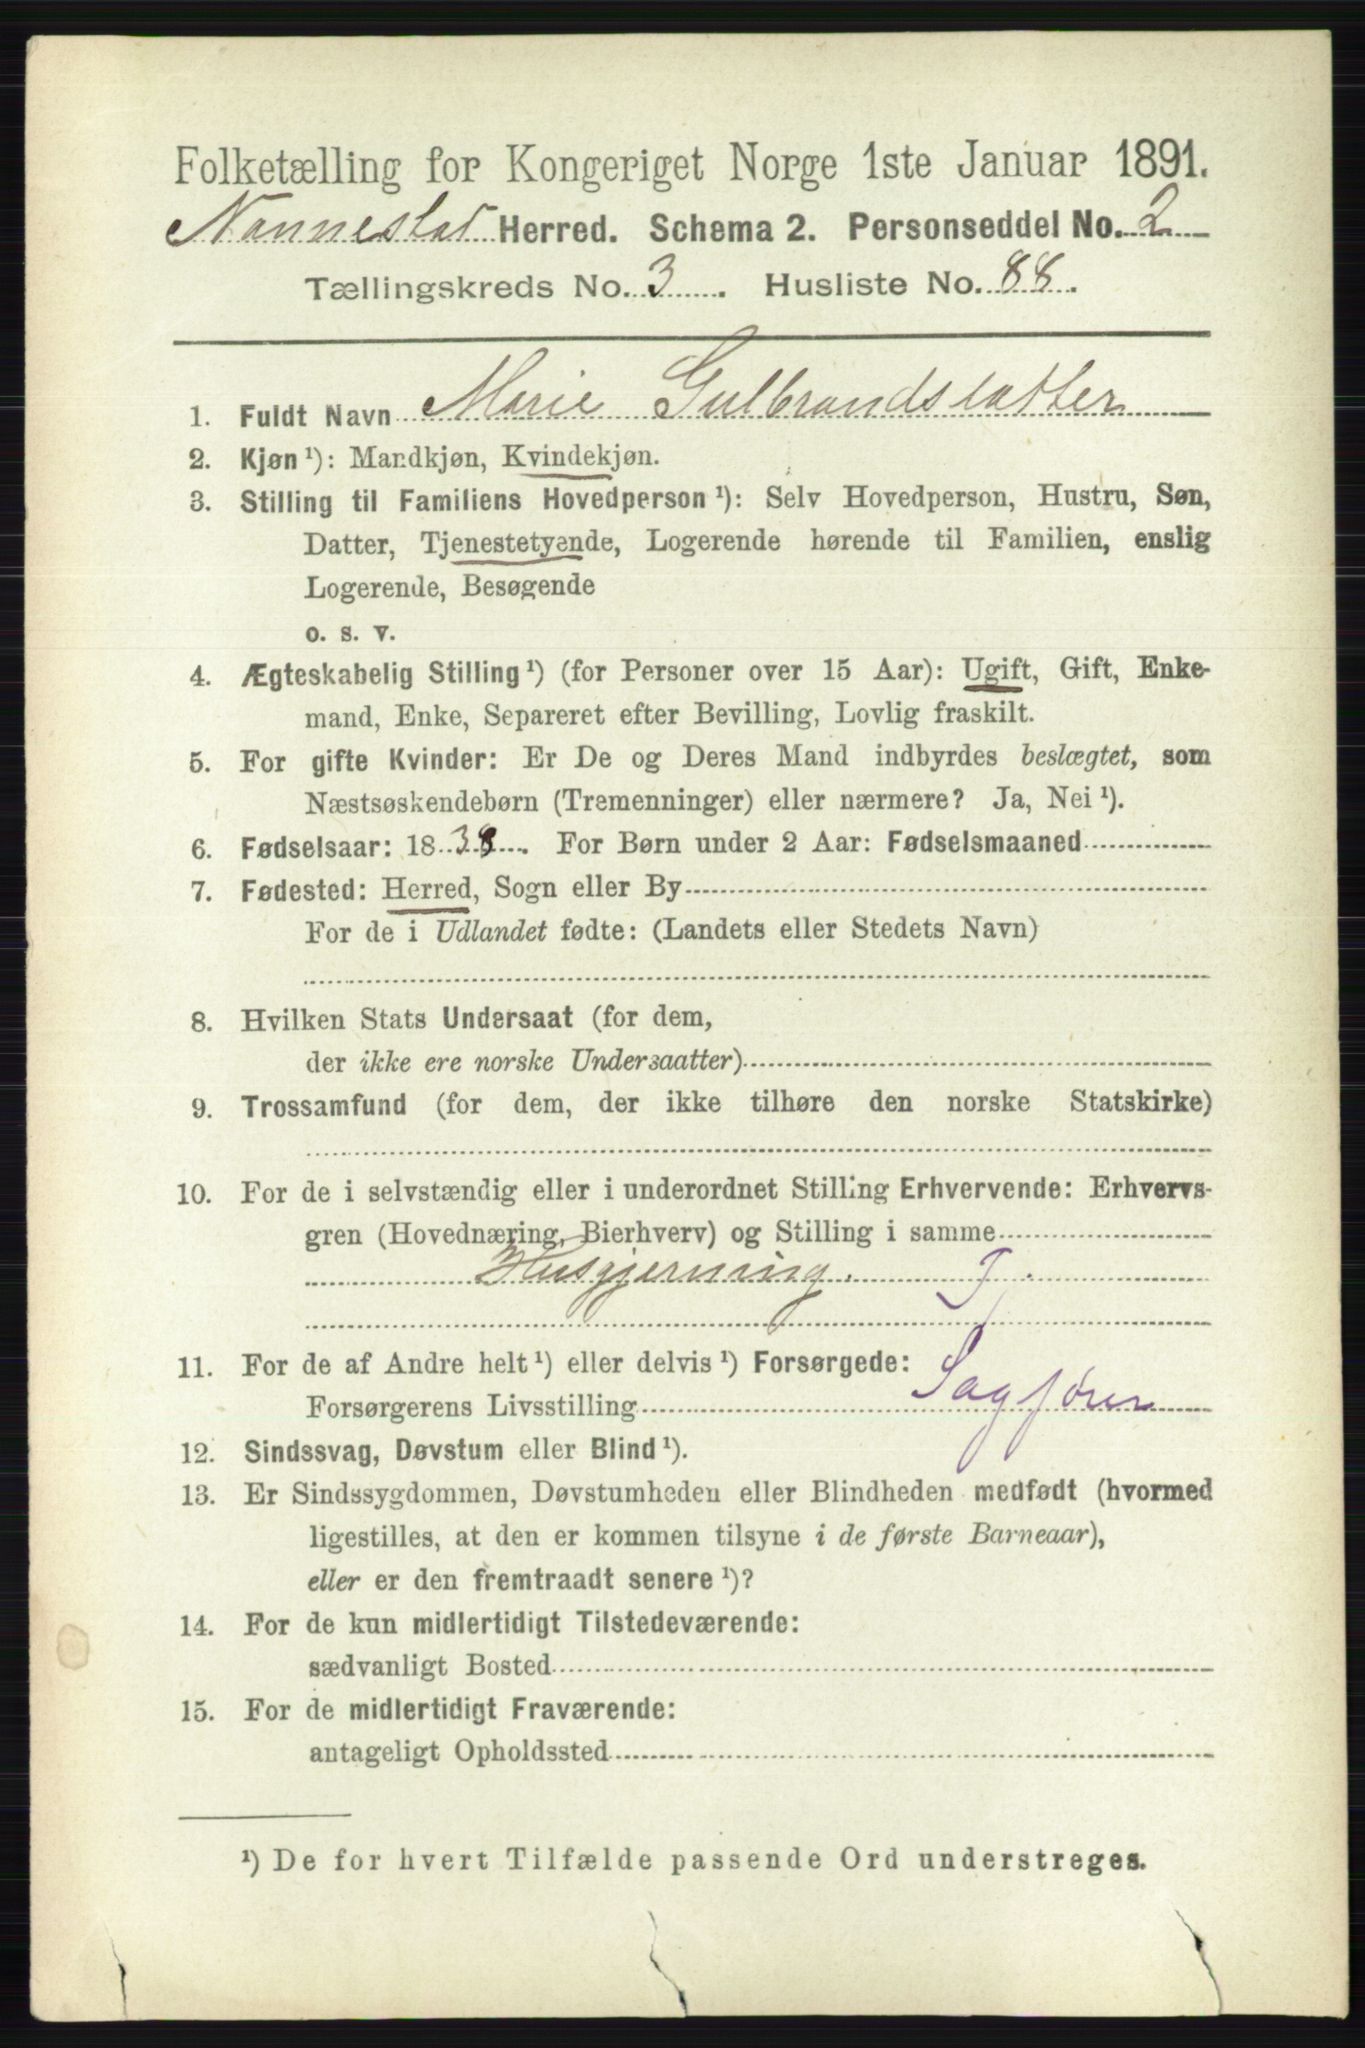 Folketælling for Kongeriget Norge 1ste Januar 1891.
Nannestad Herred. Schema 2. Personseddel No. 2
Tællingskreds No. 3. Husliste No. 88.
1. Fuldt Navn Marie Gulbrandsdatter
2. Kjøn ¹): Mandkjøn, Kvindekjøn.
3. Stilling til Familiens Hovedperson ¹): Selv Hovedperson, Hustru, Søn,
Datter, Tjenestetyende, Logerende hørende til Familien, enslig
Logerende, Besøgende
o. s. v.
4. Ægteskabelig Stilling ¹) (for Personer over 15 Aar): Ugift, Gift, Enke-
mand, Enke, Separeret efter Bevilling, Lovlig fraskilt.
5. For gifte Kvinder: Er De og Deres Mand indbyrdes beslægtet, som
Næstsøskendebørn (Tremenninger) eller nærmere? Ja, Nei ¹).
6. Fødselsaar: 1838. For Børn under 2 Aar: Fødselsmaaned
7. Fødested: Herred, Sogn eller By
For de i Udlandet fødte: (Landets eller Stedets Navn)
8. Hvilken Stats Undersaat (for dem,
der ikke ere norske Undersaatter)
9. Trossamfund (for dem, der ikke tilhøre den norske Statskirke)
10. For de i selvstændig eller i underordnet Stilling Erhvervende: Erhvervs-
gren (Hovednæring, Bierhverv) og Stilling i samme
Husgjerning. T.
11. For de af Andre helt ¹) eller delvis ¹) Forsørgede:
Forsørgerens Livsstilling Sagfører
12. Sindssvag, Døvstum eller Blind ¹).
13. Er Sindssygdommen, Døvstumheden eller Blindheden medfødt (hvormed
ligestilles, at den er kommen tilsyne i de første Barneaar),
eller er den fremtraadt senere ¹)?
14. For de kun midlertidigt Tilstedeværende:
sædvanligt Bosted
15. For de midlertidigt Fraværende:
antageligt Opholdssted
¹) De for hvert Tilfælde passende Ord understreges.